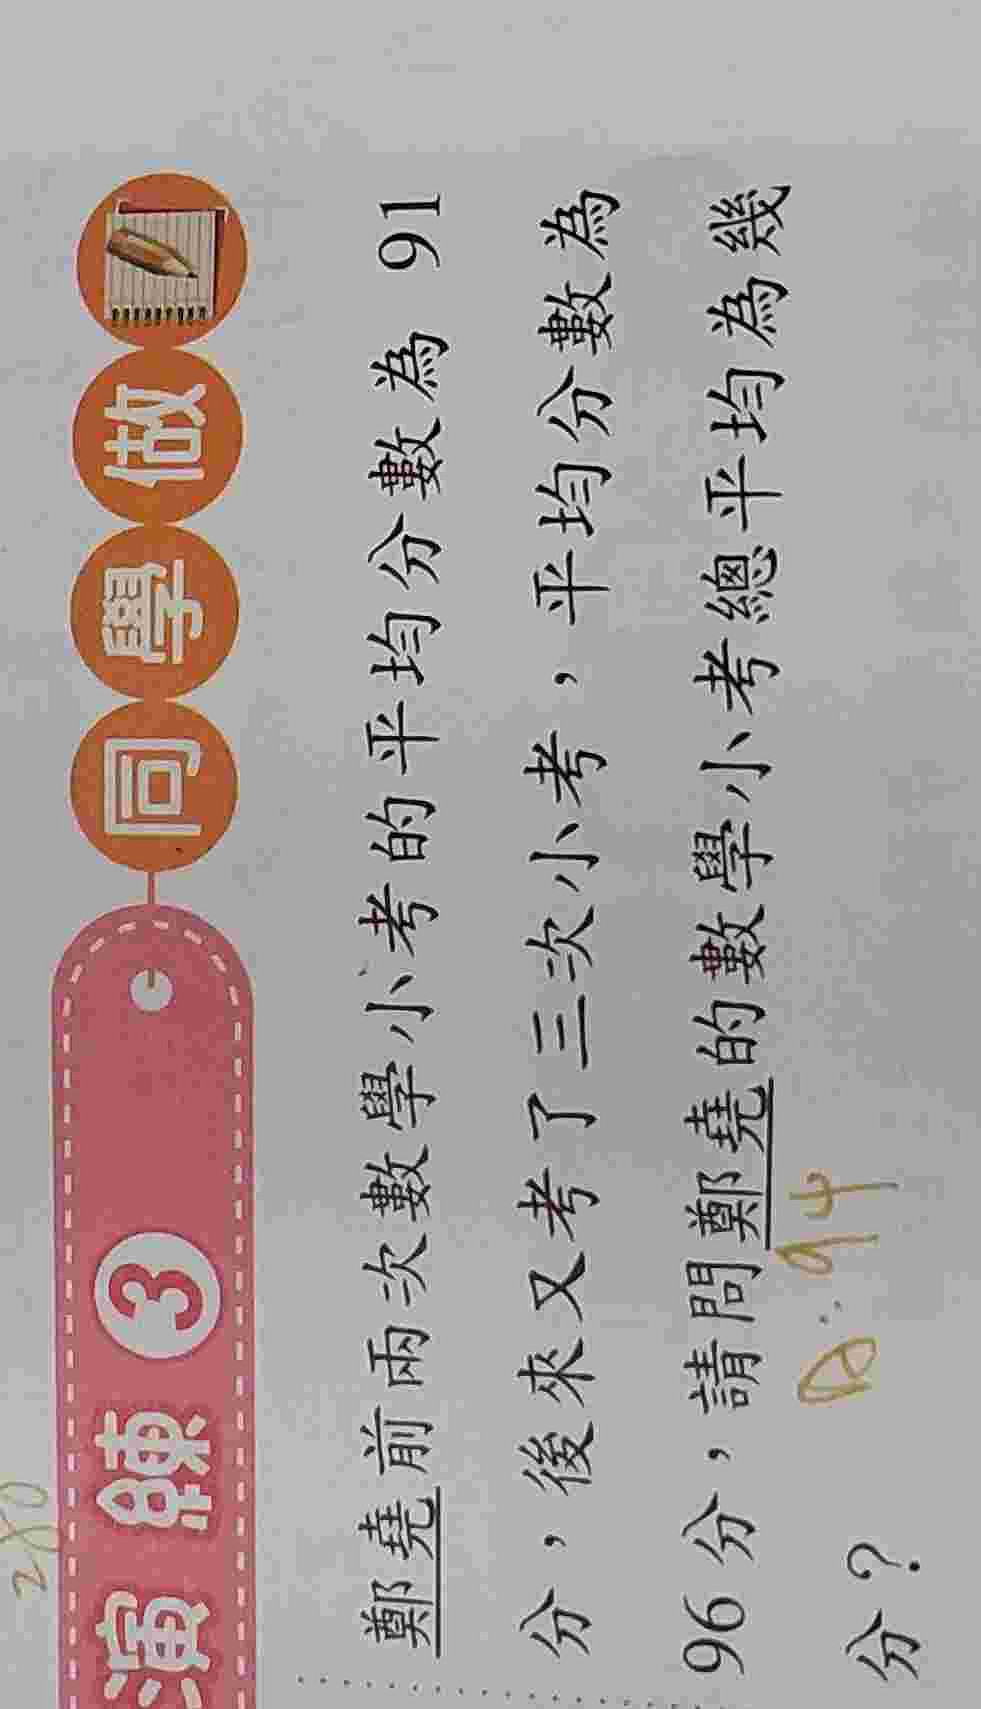 280
演練 3 同學做
鄭堯前兩次數學小考的平均分數為 91
分，後來又考了三次小考，平均分數為
96 分，請問鄭堯的數學小考總平均為幾
分？
A：94